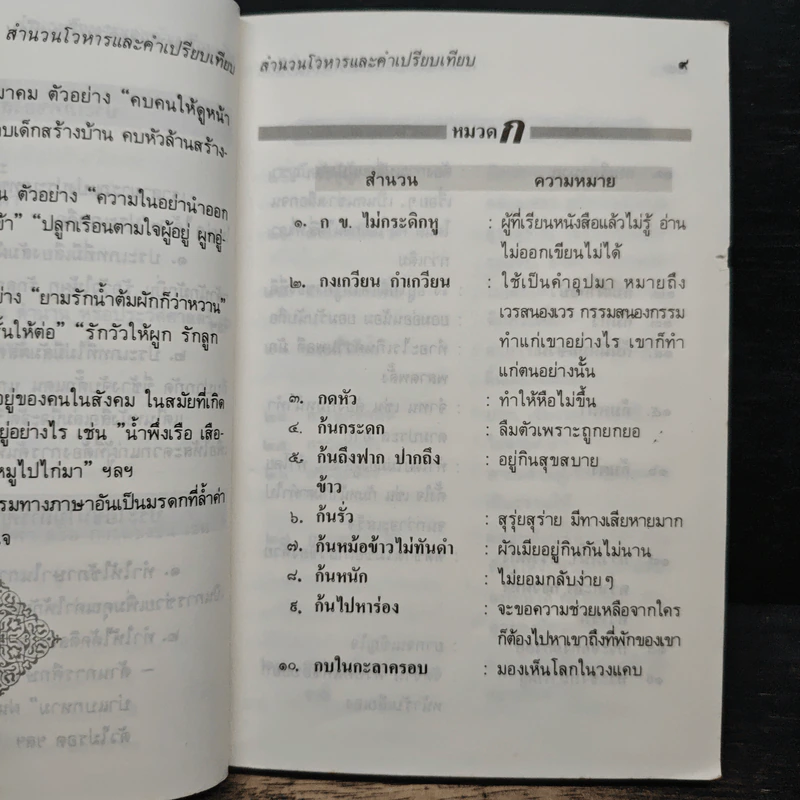 สำนวนโวหารและคำเปรียบเทียบ
มาคม ตัวอย่าง “คบคนให้ดูหน้า
บเด็กสร้างบ้าน คบหัวล้านสร้าง-
น ตัวอย่าง “ความในอย่านำออก
ข้า” “ปลูกเรือนตามใจผู้อยู่ ผูกอู่-
ย่าง “ยามรักน้ำต้มผักก็ว่าหวาน”
ั้นให้ต่อ” “รักวัวให้ผูก รักลูก
อยู่ของคนในสังคม ในสมัยที่เกิด
ยู่อย่างไร เช่น “น้ำพึ่งเรือ เสือ-
หมูไปไก่มา” ฯลฯ
รมทางภาษาอันเป็นมรดกที่ล้ำค่า
ใจ
สำนวนโวหารและคำเปรียบเทียบ ๙
หมวด ก
สำนวน ความหมาย
๑. ก ข. ไม่กระดิกหู : ผู้ที่เรียนหนังสือแล้วไม่รู้ อ่าน
ไม่ออกเขียนไม่ได้
๒. กงเกวียน กำเกวียน : ใช้เป็นคำอุปมา หมายถึง
เวรสนองเวร กรรมสนองกรรม
ทำแก่เขาอย่างไร เขาก็ทำ
แก่ตนอย่างนั้น
๓. กดหัว : ทำให้หือไม่ขึ้น
๔. ก้นกระดก : ลืมตัวเพราะถูกยกยอ
๕. ก้นถึงฟาก ปากถึง : อยู่กินสุขสบาย
ข้าว
๖. ก้นรั่ว : สุรุ่ยสุร่าย มีทางเสียหายมาก
๗. ก้นหม้อข้าวไม่ทันดำ : ผัวเมียอยู่กินกันไม่นาน
๘. ก้นหนัก : ไม่ยอมกลับง่ายๆ
๙. ก้นไปหาร่อง : จะขอความช่วยเหลือจากใคร
ก็ต้องไปหาเขาถึงที่พักของเขา
๑๐. กบในกะลาครอบ : มองเห็นโลกในวงแคบ